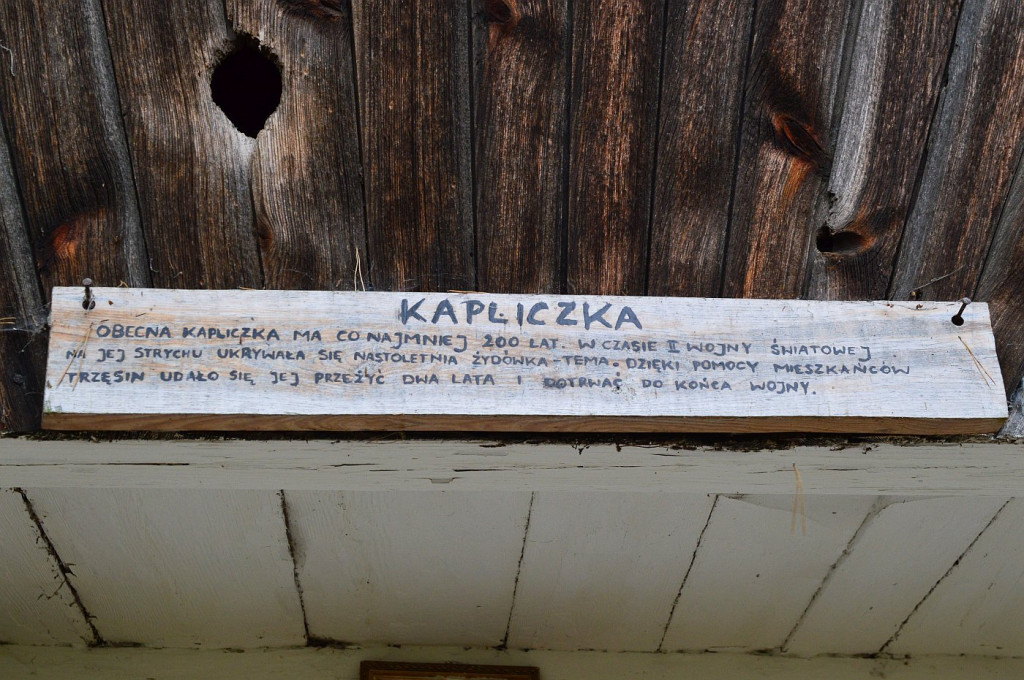 KAPLICZKA
OBECNA KAPLICZKA MA CO NAJMNIEJ 200 LAT. W CZASIE II WOJNY ŚWIATOWEJ
NA JEJ STRYCHU UKRYWAŁA SIĘ NASTOLETNIA ŻYDÓWKA - TEMA. DZIĘKI POMOCY MIESZKAŃCÓW
TRZĘSIN UDAŁO SIĘ JEJ PRZEŻYĆ DWA LATA I DOTRWAĆ DO KOŃCA WOJNY.